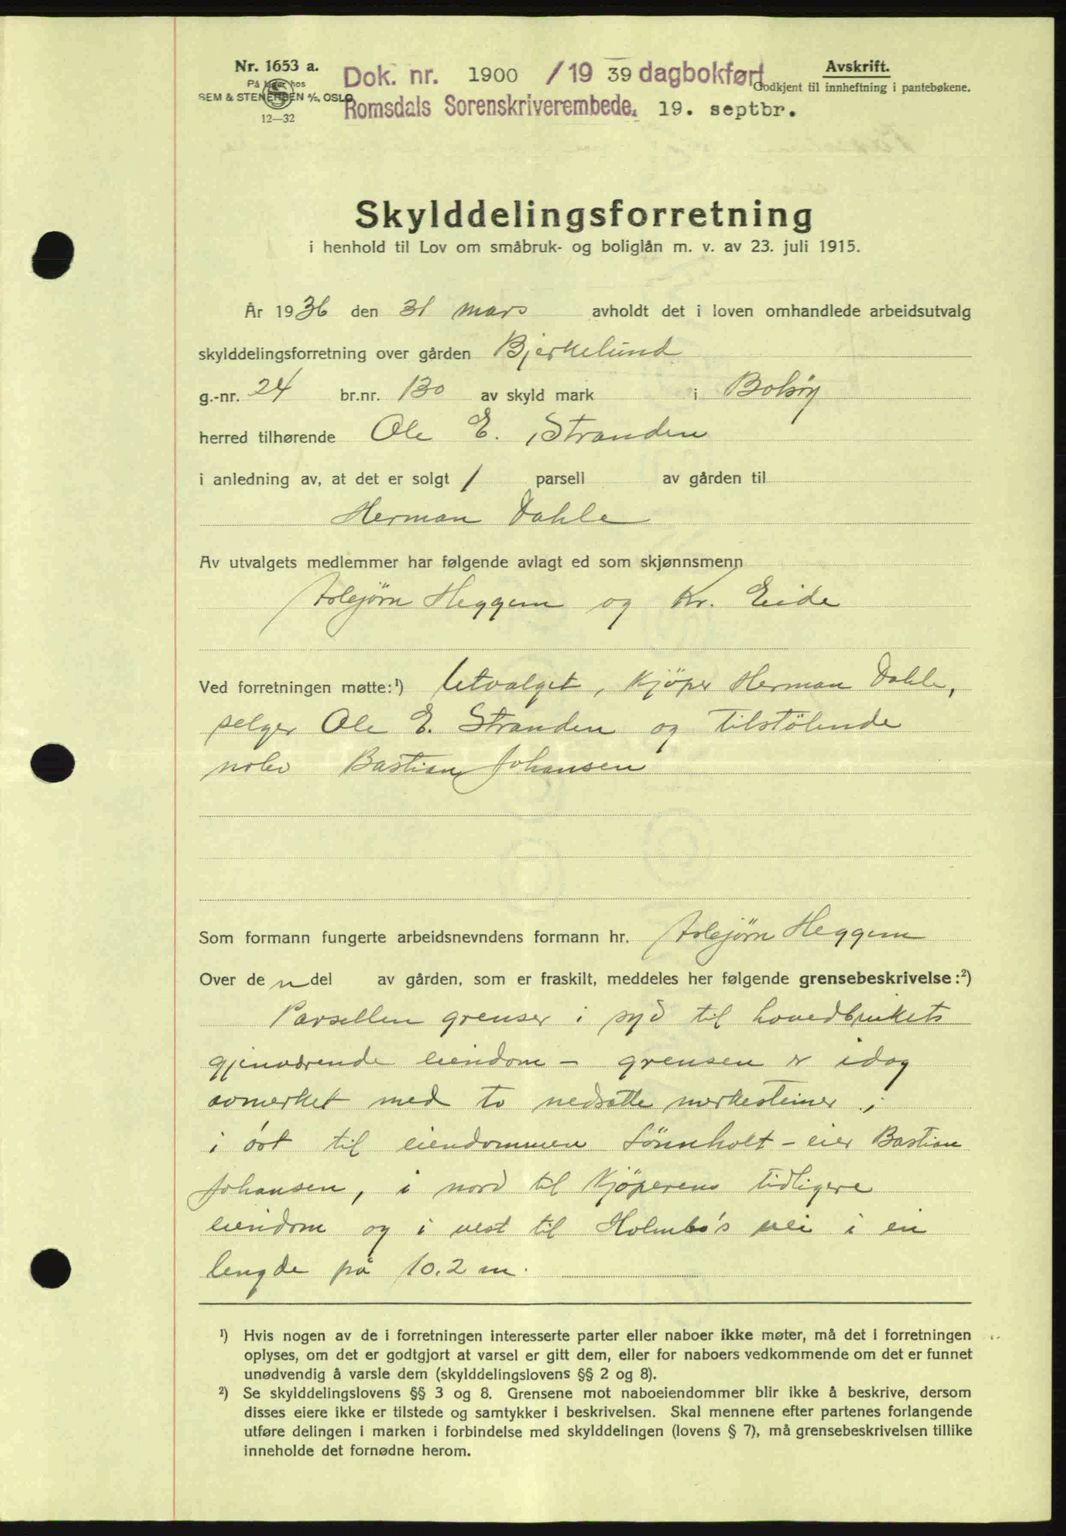 Nr. 1653 a.
På lager hos
SEM & STENERSEN A/S, OSLO
12—32
Dok. nr. 1900 /19 39 dagbokført
Romsdals Sorenskriverembede. 19. septbr.
Avskrift.
Godkjent til innheftning i pantebøkene.
Skylddelingsforretning
i henhold til Lov om småbruk- og boliglån m. v. av 23. juli 1915.
År 1936 den 31 mars avholdt det i loven omhandlede arbeidsutvalg
skylddelingsforretning over gården Bjerkelund
g.-nr. 24 br.nr. 130 av skyld mark i Bolsøy
herred tilhørende Ole E. Stranden
i anledning av, at det er solgt 1 parsell av gården til
Herman Dahle
Av utvalgets medlemmer har følgende avlagt ed som skjønnsmenn
Asbjørn Heggem og Kr. Eide
Ved forretningen møtte:¹) Utvalget, kjöper Herman Dahle,
selger Ole E. Stranden og tilstötende
nabo Bastian Johansen
Som formann fungerte arbeidsnevndens formann hr. Asbjørn Heggem
Over de n del av gården, som er fraskilt, meddeles her følgende grensebeskrivelse:²)
Parsellen grenser i syd til hovedbrukets
gjenværende eiendom – grensen er idag
avmerket med to nedsatte merkesteiner ;
i öst til eiendommen Lönnholt – eier Bastian
Johansen, i nord til kjöperens tidligere
eiendom og i vest til Holmbo's vei i en
lengde på 10.2 m.
¹) Hvis nogen av de i forretningen interesserte parter eller naboer ikke møter, må det i forretningen
oplyses, om det er godtgjort at varsel er gitt dem, eller for naboers vedkommende om det er funnet
unødvendig å varsle dem (skylddelingslovens §§ 2 og 8).
²) Se skylddelingslovens §§ 3 og 8. Grensene mot naboeiendommer blir ikke å beskrive, dersom
disses eiere ikke er tilstede og samtykker i beskrivelsen. Skal mennene efter partenes forlangende
utføre delingen i marken i forbindelse med skylddelingen (lovens § 7), må grensebeskrivelsen tillike
inneholde det fornødne herom.